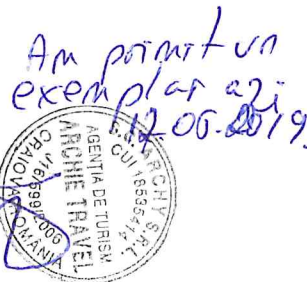 Am primit un
exemplar azi
12.06.2019
S.C. ARCHY S.R.L.
CUI 18535414
AGENTIA DE TURISM
ARCHIE TRAVEL
CRAIOVA-ROMÂNIA